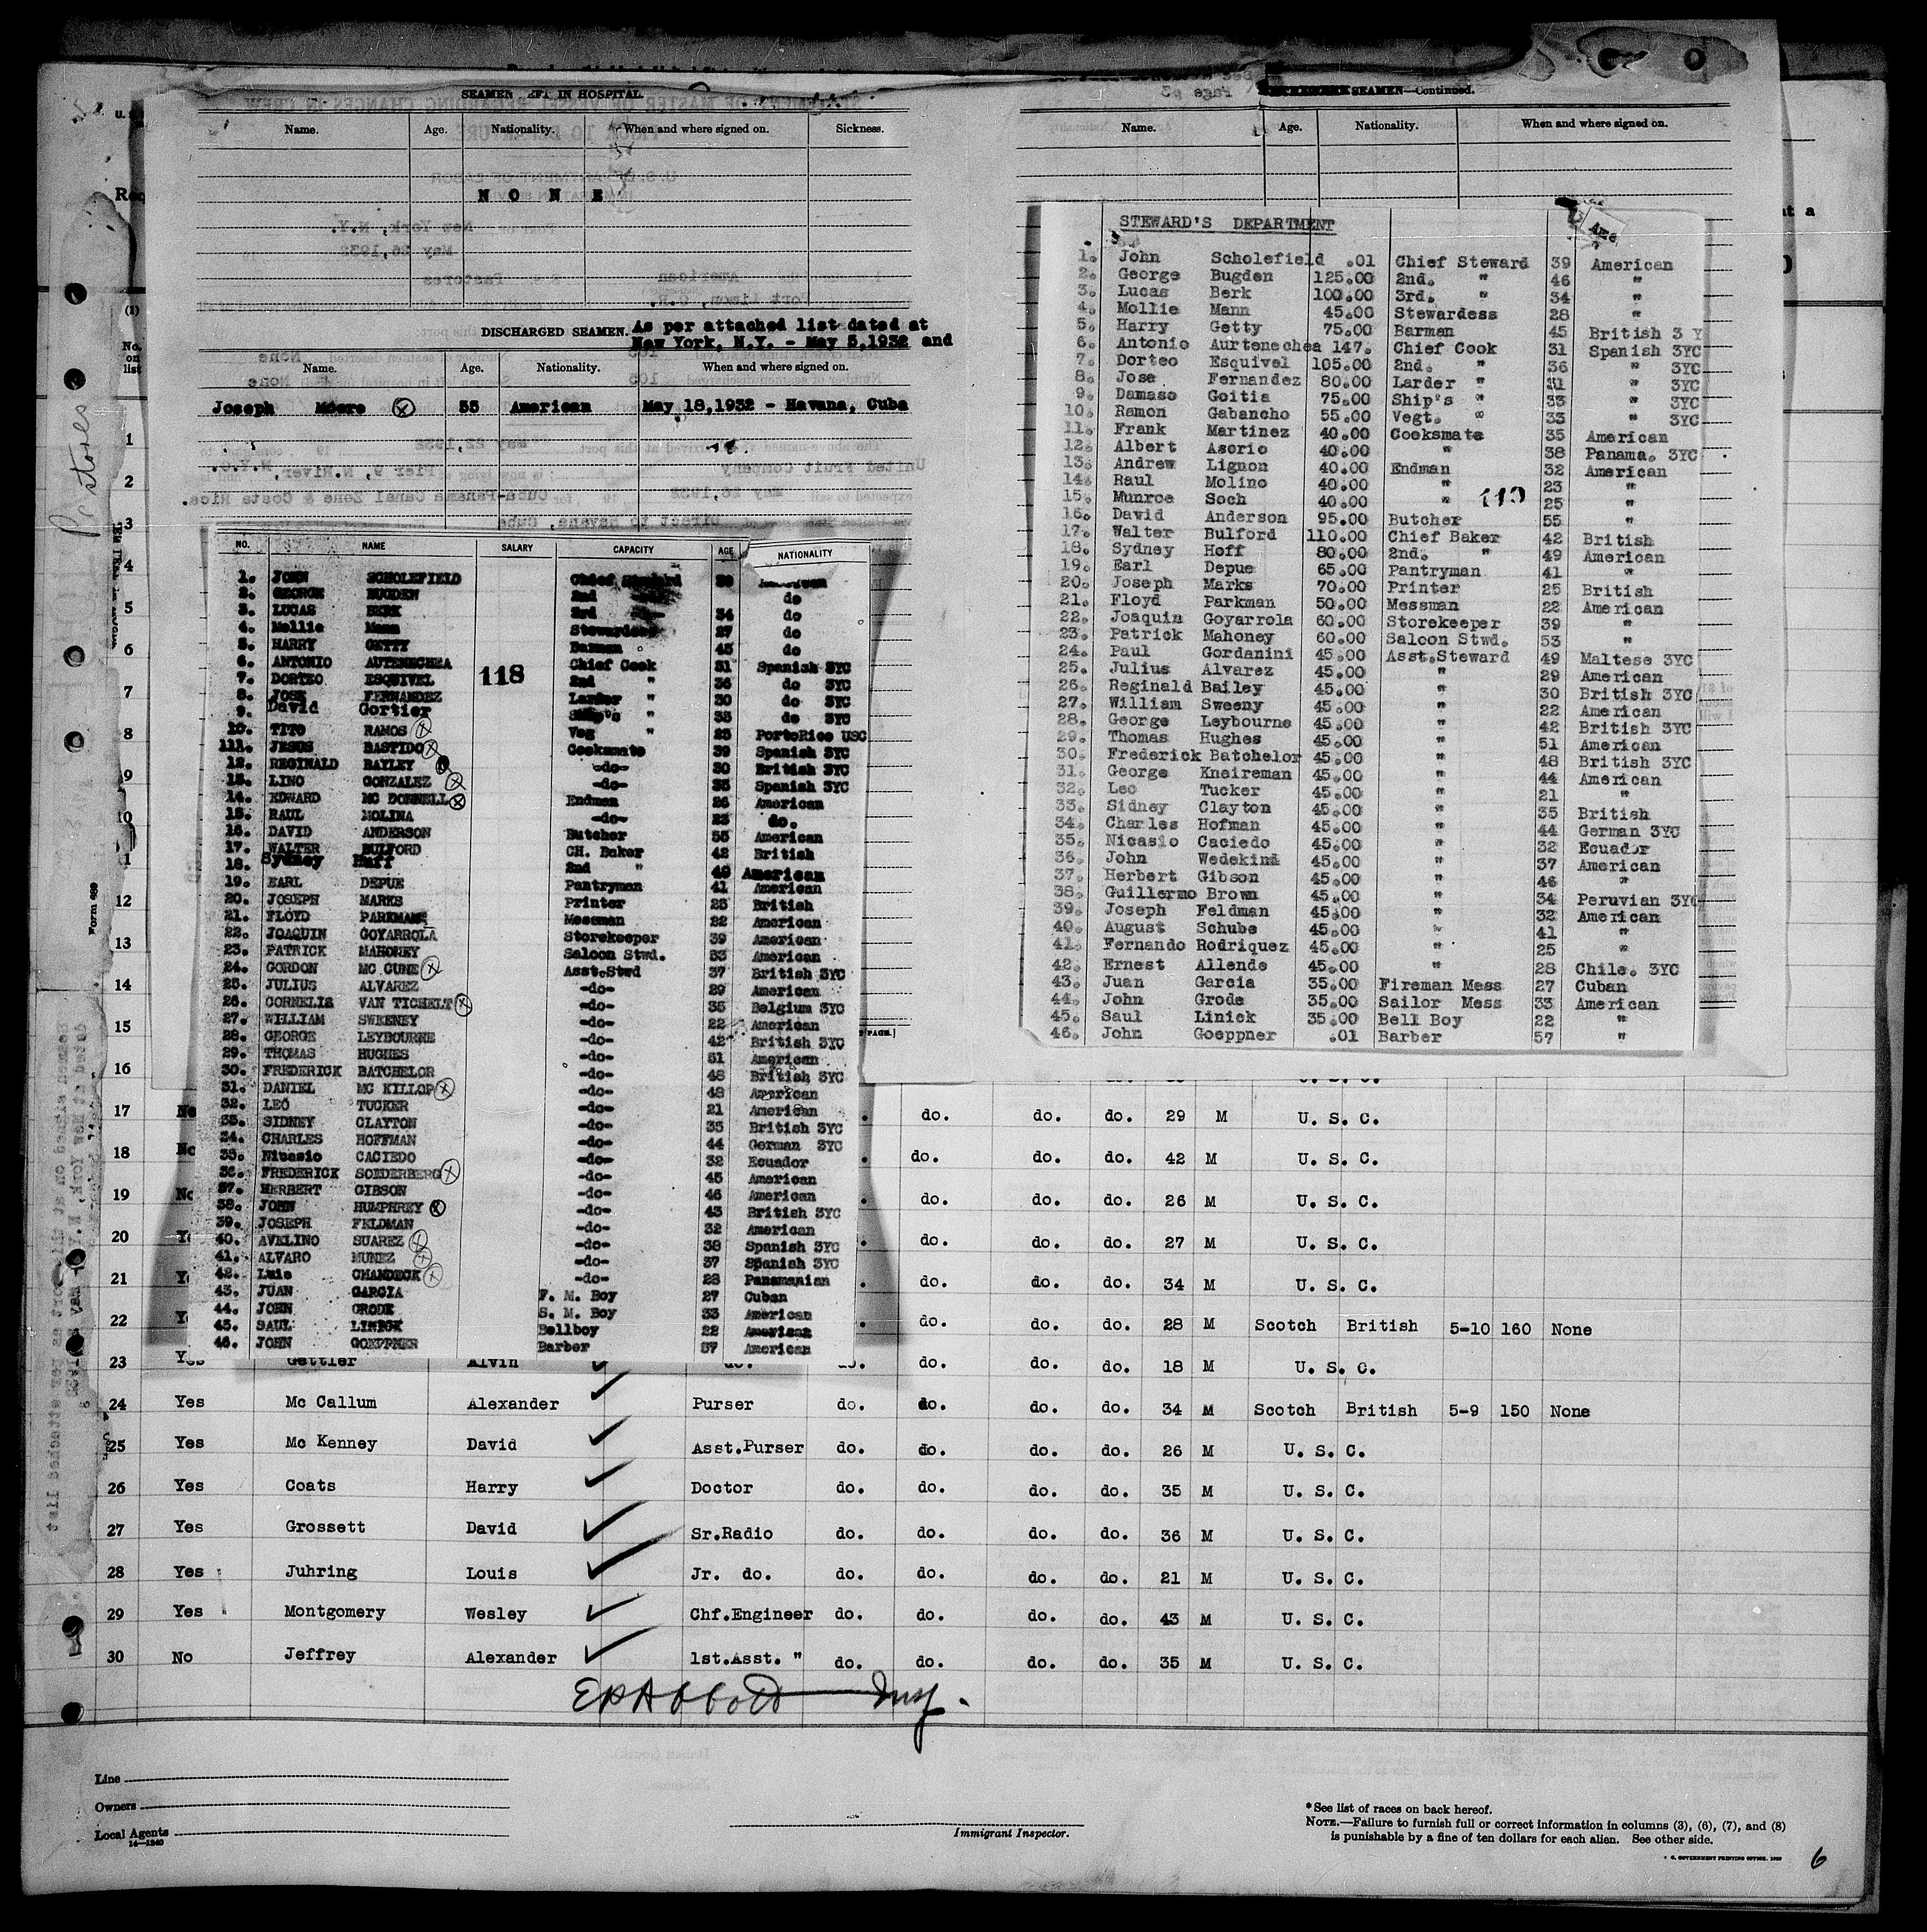 SEAMEN LEFT IN HOSPITAL.
Name. Age. Nationality. When and where signed on. Sickness.
N O N E
DISCHARGED SEAMEN. As per attached list dated at
New York, N.Y. - May 5,1932 and
Name. Age. Nationality. When and where signed on.
Joseph Moore 35 American May 18,1932 - Havana, Cuba
NO. NAME SALARY CAPACITY AGE NATIONALITY
1. JOHN SCHOLEFIELD Chief Steward 39 American
2. GEORGE BUGDEN 2nd do
3. LUCAS BERK 3rd 34 do
4. Mollie Mann Stewardess 27 do
5. HARRY GETTY Barman 45 do
6. ANTONIO AUTENECHEA Chief Cook 31 Spanish 3YC
118
7. DORTEO ESQUIVEL 2nd " 36 do 3YC
8. JOSE FERNANDEZ Larder " 30 do 3YC
9. David Gortier Ship's " 33 do 3YC
10. TITO RAMOS Veg " 25 PortoRico USC
111. JESUS BASTIDO Cooksmate 39 Spanish 3YC
12. REGINALD BAYLEY -do- 30 British 3YC
13. LINO GONZALEZ -do- 35 Spanish 3YC
14. EDWARD MC DONNELL Endman 26 American
15. RAUL MOLINA -do- 23 do.
16. DAVID ANDERSON Butcher 55 American
17. WALTER BULFORD CH. Baker 42 British
18. Sydney Huff 2nd " 49 American
19. EARL DEPUE Pantryman 41 American
20. JOSEPH MARKS Printer 25 British
21. FLOYD PARKMAN Messman 22 American
22. JOAQUIN GOYARROLA Storekeeper 39 American
23. PATRICK MAHONEY Saloon Stwd. 53 American
24. GORDON MC CUNE Asst.Stwd 37 British 3YC
25. JULIUS ALVAREZ -do- 29 American
26. CORNELIS VAN TICHELT -do- 35 Belgium 3YC
27. WILLIAM SWEENEY -do- 22 American
28. GEORGE LEYBOURNE -do- 42 British 3YC
29. THOMAS HUGHES -do- 51 American
30. FREDERICK BATCHELOR -do- 48 British 3YC
31. DANIEL MC KILLOP -do- 48 American
32. LEO TUCKER -do- 21 American
33. SIDNEY CLAYTON -do- 35 British 3YC
34. CHARLES HOFFMAN -do- 44 German 3YC
35. Nicasio CACIEDO -do- 32 Ecuador
36. FREDERICK SOEDERBERG -do- 45 American
37. HERBERT GIBSON -do- 46 American
38. JOHN HUMPHREY -do- 43 British 3YC
39. JOSEPH FELDMAN -do- 32 American
40. AVELINO SUAREZ -do- 38 Spanish 3YC
41. ALVARO MUNEZ -do- 37 Spanish 3YC
42. Luis CHANDECK -do- 28 Panamanian
43. JUAN GARCIA F. M. Boy 27 Cuban
44. JOHN GRODE S. M. Boy 33 American
45. SAUL LINICK Bellboy 22 American
46. JOHN GOEPPNER Barber 57 American
SEAMEN—Continued.
Name. Age. Nationality. When and where signed on.
STEWARD'S DEPARTMENT
Ame
1. John Scholefield .01 Chief Steward 39 American
2. George Bugden 125.00 2nd. " 46 "
3. Lucas Berk 100.00 3rd. " 34 "
4. Mollie Mann 45.00 Stewardess 28 "
5. Harry Getty 75.00 Barman 45 British 3 Y
6. Antonio Aurtenechea 147. Chief Cook 31 Spanish 3YC
7. Dorteo Esquivel 105.00 2nd. " 36 " 3YC
8. Jose Fernandez 80.00 Larder " 31 " 3YC
9. Damaso Goitia 75.00 Ship's " 33 " 3YC
10. Ramon Gabancho 55.00 Vegt. " 33 " 3YC
11. Frank Martinez 40.00 Cooksmate 35 American
12. Albert Asorio 40.00 " 38 Panama. 3YC
13. Andrew Lignon 40.00 Endman 32 American
14. Raul Molino 40.00 " 23 "
119
15. Munroe Soch 40.00 " 25 "
16. David Anderson 95.00 Butcher 55 "
17. Walter Bulford 110.00 Chief Baker 42 British
18. Sydney Hoff 80.00 2nd. " 49 American
19. Earl Depue 65.00 Pantryman 41 "
20. Joseph Marks 70.00 Printer 25 British
21. Floyd Parkman 50.00 Messman 22 American
22. Joaquin Goyarrola 60.00 Storekeeper 39 "
23. Patrick Mahoney 60.00 Saloon Stwd. 53 "
24. Paul Gordanini 45.00 Asst.Steward 49 Maltese 3YC
25. Julius Alvarez 45.00 " 29 American
26. Reginald Bailey 45.00 " 30 British 3YC
27. William Sweeny 45.00 " 22 American
28. George Leybourne 45.00 " 42 British 3YC
29. Thomas Hughes 45.00 " 51 American
30. Frederick Batchelor 45.00 " 48 British 3YC
31. George Kneireman 45.00 " 44 American
32. Leo Tucker 45.00 " 21 "
33. Sidney Clayton 45.00 " 35 British
34. Charles Hofman 45.00 " 44 German 3YC
35. Nicasio Caciedo 45.00 " 32 Ecuador
36. John Wedekind 45.00 " 37 American
37. Herbert Gibson 45.00 " 46 "
38. Guillermo Brown 45.00 " 34 Peruvian 3YC
39. Joseph Feldman 45.00 " 32 American
40. August Schube 45.00 " 41 "
41. Fernando Rodriquez 45.00 " 25 "
42. Ernest Allende 45.00 " 28 Chile. 3YC
43. Juan Garcia 35.00 Fireman Mess 27 Cuban
44. John Grode 35.00 Sailor Mess 33 American
45. Saul Linick 35.00 Bell Boy 22 "
46. John Goeppner .01 Barber 57 "
Pastores
No. on list
Form 689
1
2
3
4
5
6
7
8
9
10
11
12
13
14
15
16
17 No do. do. do. 29 M U. S. C.
18 No do. do. do. 42 M U. S. C.
19 No do. do. do. 26 M U. S. C.
20 do. do. do. 27 M U. S. C.
21 do. do. do. 34 M U. S. C.
22 do. do. do. 28 M Scotch British 5-10 160 None
23 Yes Gettler Alvin do. do. do. do. do. 18 M U. S. C.
24 Yes Mc Callum Alexander Purser do. do. do. do. 34 M Scotch British 5-9 150 None
25 Yes Mc Kenney David Asst.Purser do. do. do. do. 26 M U. S. C.
26 Yes Coats Harry Doctor do. do. do. do. 35 M U. S. C.
27 Yes Grossett David Sr.Radio do. do. do. do. 36 M U. S. C.
28 Yes Juhring Louis Jr. do. do. do. do. do. 21 M U. S. C.
29 Yes Montgomery Wesley Chf.Engineer do. do. do. do. 43 M U. S. C.
30 No Jeffrey Alexander 1st.Asst. " do. do. do. do. 35 M U. S. C.
EPAbbott Insp.
Line
Owners
Local Agents
14—1240
Immigrant Inspector.
*See list of races on back hereof.
NOTE.—Failure to furnish full or correct information in columns (3), (6), (7), and (8)
is punishable by a fine of ten dollars for each alien. See other side.
6